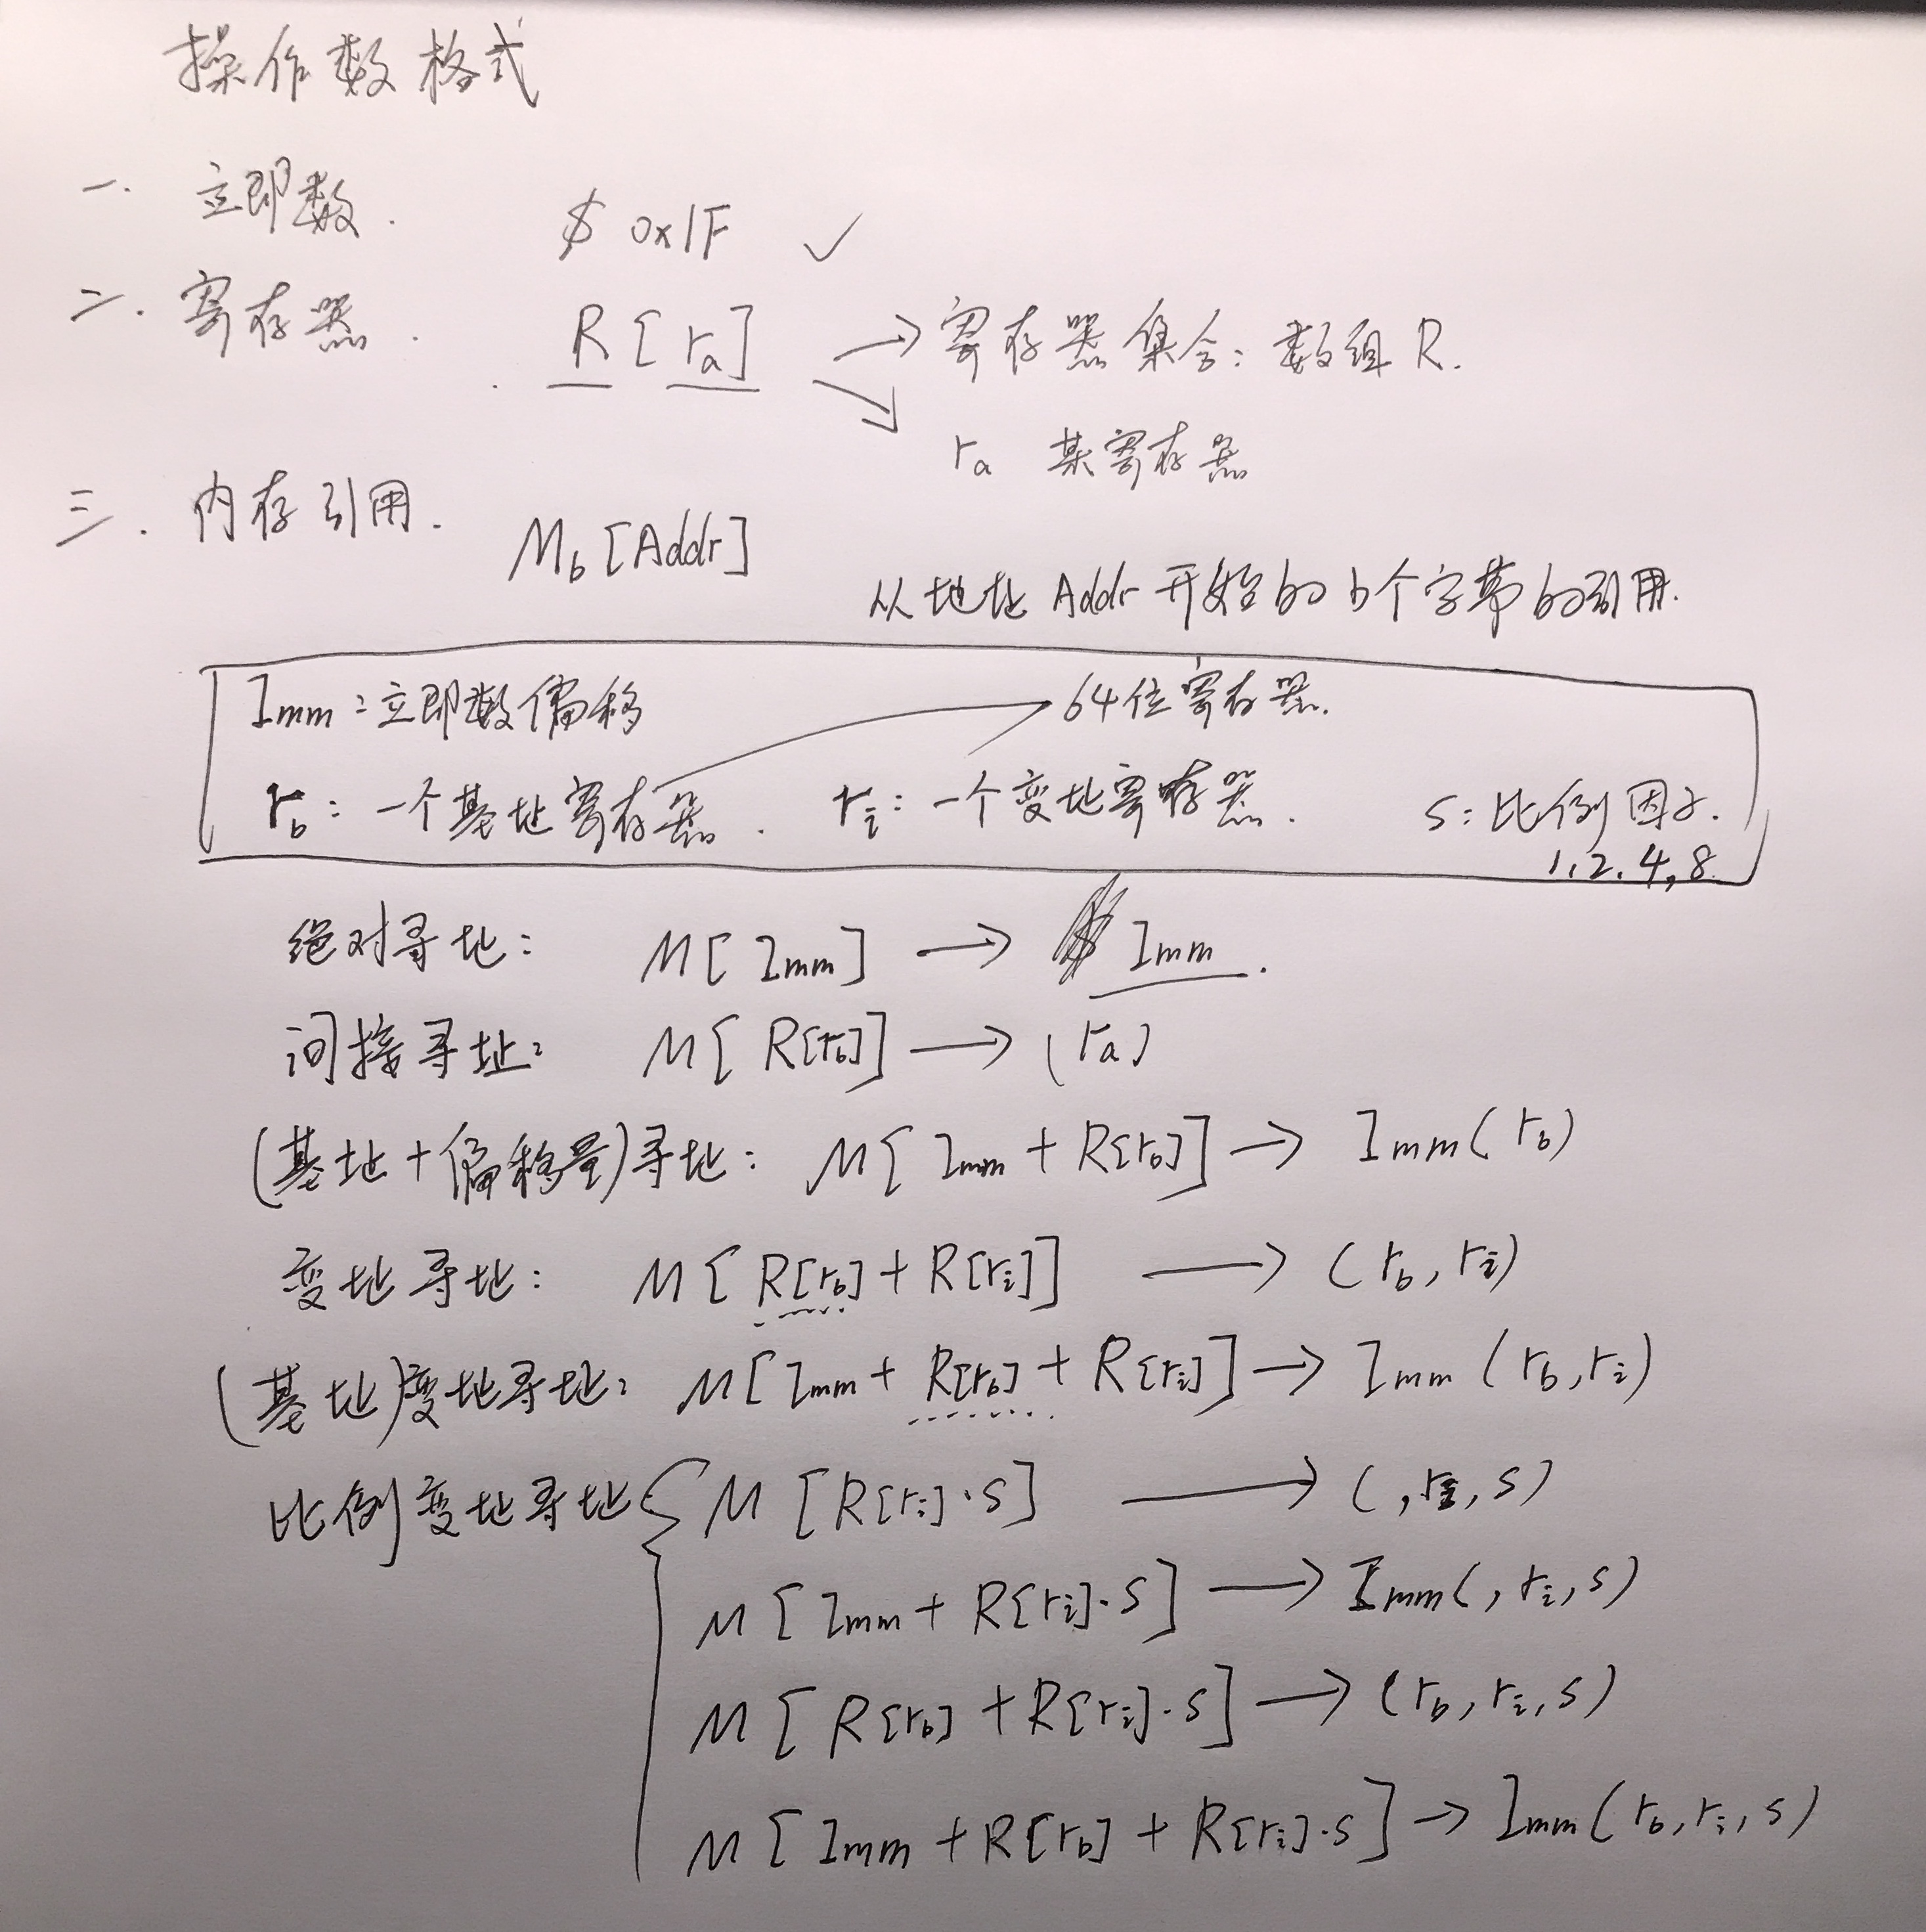 操作数格式
一. 立即数. $ 0x1F ✓
二. 寄存器. R[ra] → 寄存器集合: 数组R.
ra 某寄存器
三. 内存引用. Mb[Addr]
从地址Addr开始的b个字节的引用.
Imm: 立即数偏移 64位寄存器.
rb: 一个基址寄存器. ri: 一个变址寄存器. s: 比例因子.
1,2,4,8
绝对寻址: M[Imm] → Imm.
间接寻址: M[R[rb]] → (ra)
(基址+偏移量)寻址: M[Imm + R[rb]] → Imm(rb)
变址寻址: M[R[rb] + R[ri]] → (rb, ri)
(基址)变址寻址: M[Imm + R[rb] + R[ri]] → Imm(rb, ri)
比例变址寻址 { M[R[ri]·s] → (, ri, s)
M[Imm + R[ri]·s] → Imm(, ri, s)
M[R[rb] + R[ri]·s] → (rb, ri, s)
M[Imm + R[rb] + R[ri]·s] → Imm(rb, ri, s)